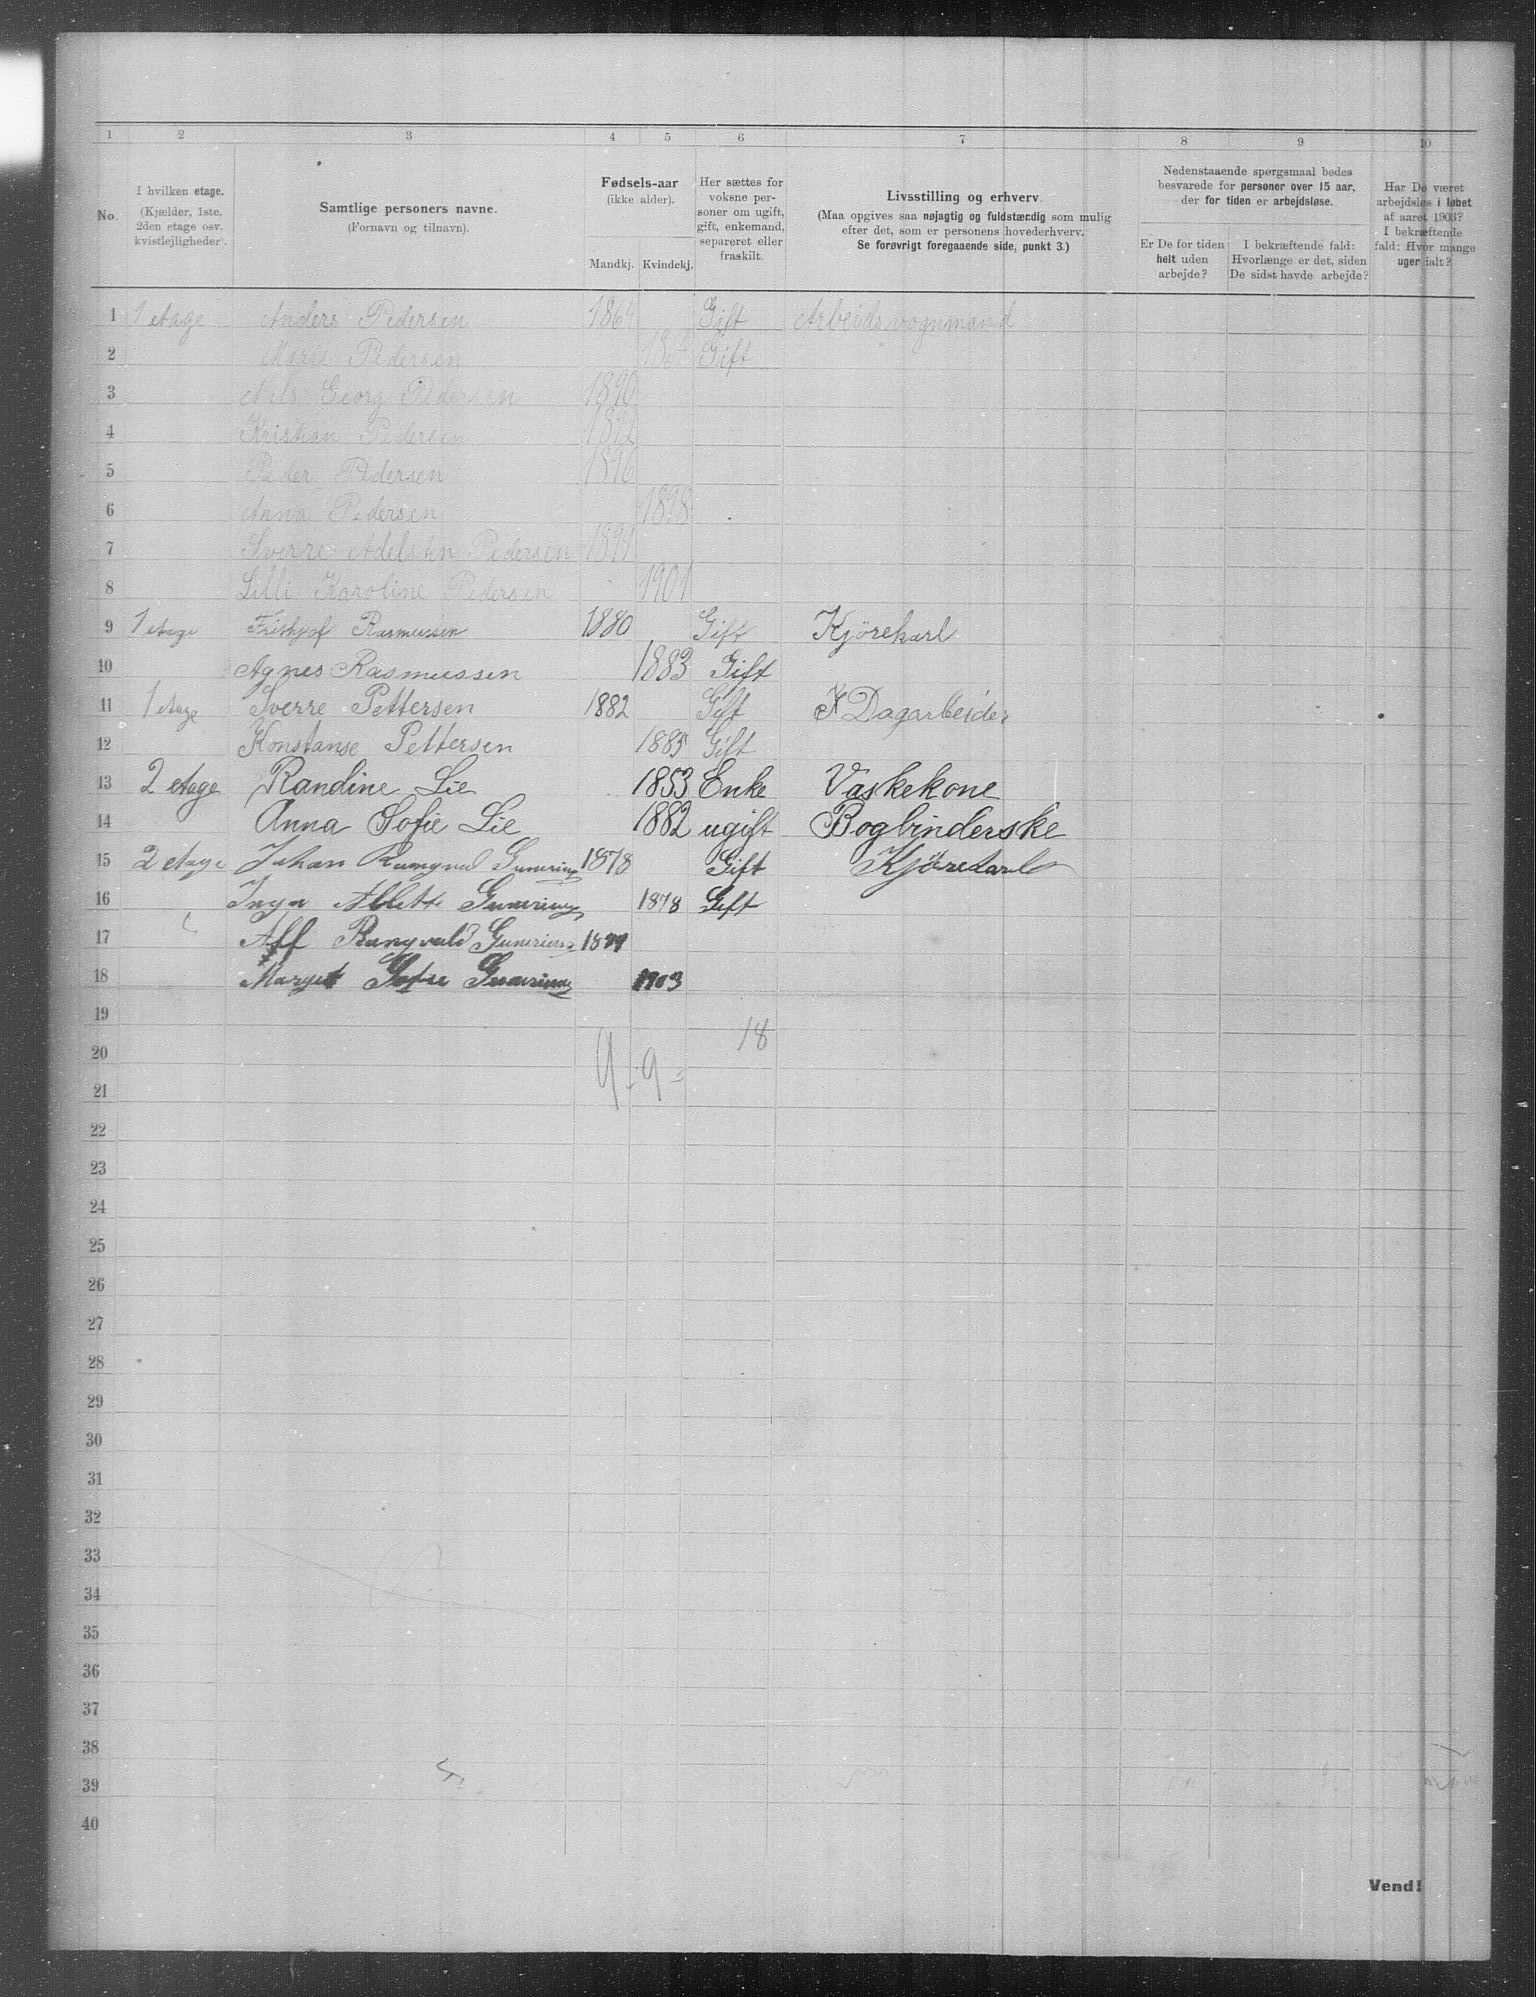 1 2 3 4 5 6 7 8 9 10
No.
I hvilken etage.
(Kjælder, 1ste,
2den etage osv.
kvistlejligheder).
Samtlige personers navne.
(Fornavn og tilnavn).
Fødsels-aar
(ikke alder).
Mandkj. Kvindekj.
Her sættes for
voksne per-
soner om ugift,
gift, enkemand,
separeret eller
fraskilt.
Livsstilling og erhverv.
(Maa opgives saa nøjagtig og fuldstændig som mulig
efter det, som er personens hovederhverv.
Se forøvrigt foregaaende side, punkt 3.)
Nedenstaaende spørgsmaal bedes
besvarede for personer over 15 aar,
der for tiden er arbejdsløse.
Er De for tiden
helt uden
arbejde?
I bekræftende fald:
Hvorlænge er det, siden
De sidst havde arbejde?
Har De været
arbejdsløs i løbet
af aaret 1903?
I bekræftende
fald: Hvor mange
uger ialt?
1 1 etage Anders Pedersen Gift Arbeidsvognmand
2 Marie Pedersen Gift
3 Nils Georg Pedersen 1890
4 Kristian Pedersen 1892
5 Peder Pedersen 1896
6 Anna Pedersen 1898
7 Sverre Adelsten Pedersen
8 Lilli Karoline Pedersen 1901
9 1 etage Frithjof Rasmussen 1880 Gift Kjørekarl
10 Agnes Rasmussen 1883 Gift
11 1 etage Sverre Pettersen 1882 Gift Dagarbeider
12 Konstanse Pettersen 1885 Gift
13 2 etage Randine Lie 1853 Enke Vaskekone
14 Anna Sofie Lie 1882 ugift Bogbinderske
15 2 etage Johan 1878 Gift Kjørekarl
16 1878 Gift
17
18 1903
19
18
20
9 - 9 =
21
22
23
24
25
26
27
28
29
30
31
32
33
34
35
36
37
38
39
40
Vend!